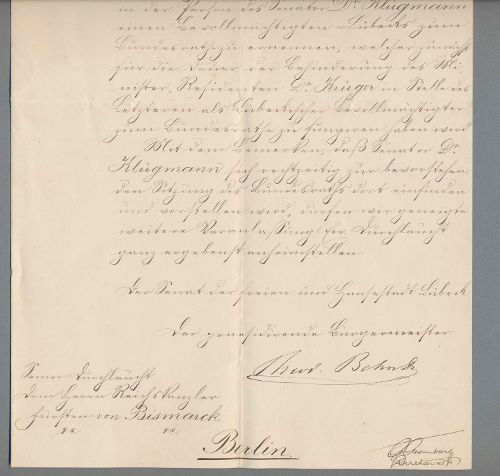 in der Person des Senator Dr. Klügmann
einen Bevollmächtigten Lübecks zum
Bundesrathe zu ernennen, welcher zunächst
für die Dauer der Behinderung des Mi-
nister-Residenten Dr. Krüger an Stelle des
Letzteren als Lübeckischer Bevollmächtigter
zum Bundesrathe zu fungiren haben wird.
Mit dem Bemerken, daß Senator Dr.
Klügmann sich rechtzeitig zur bevorstehen-
den Sitzung des Bundesraths dort einfinden
und vorstellen wird, dürfen wir geneigte
weitere Veranlassung Ew. Durchlaucht
ganz ergebenst anheimstellen.
Der Senat der freien und Hansestadt Lübeck
Der praesidirende Bürgermeister
Theod. Behn Dr.
Seiner Durchlaucht
dem Herrn Reichskanzler
Fürsten von Bismarck
Berlin.
Secretarius